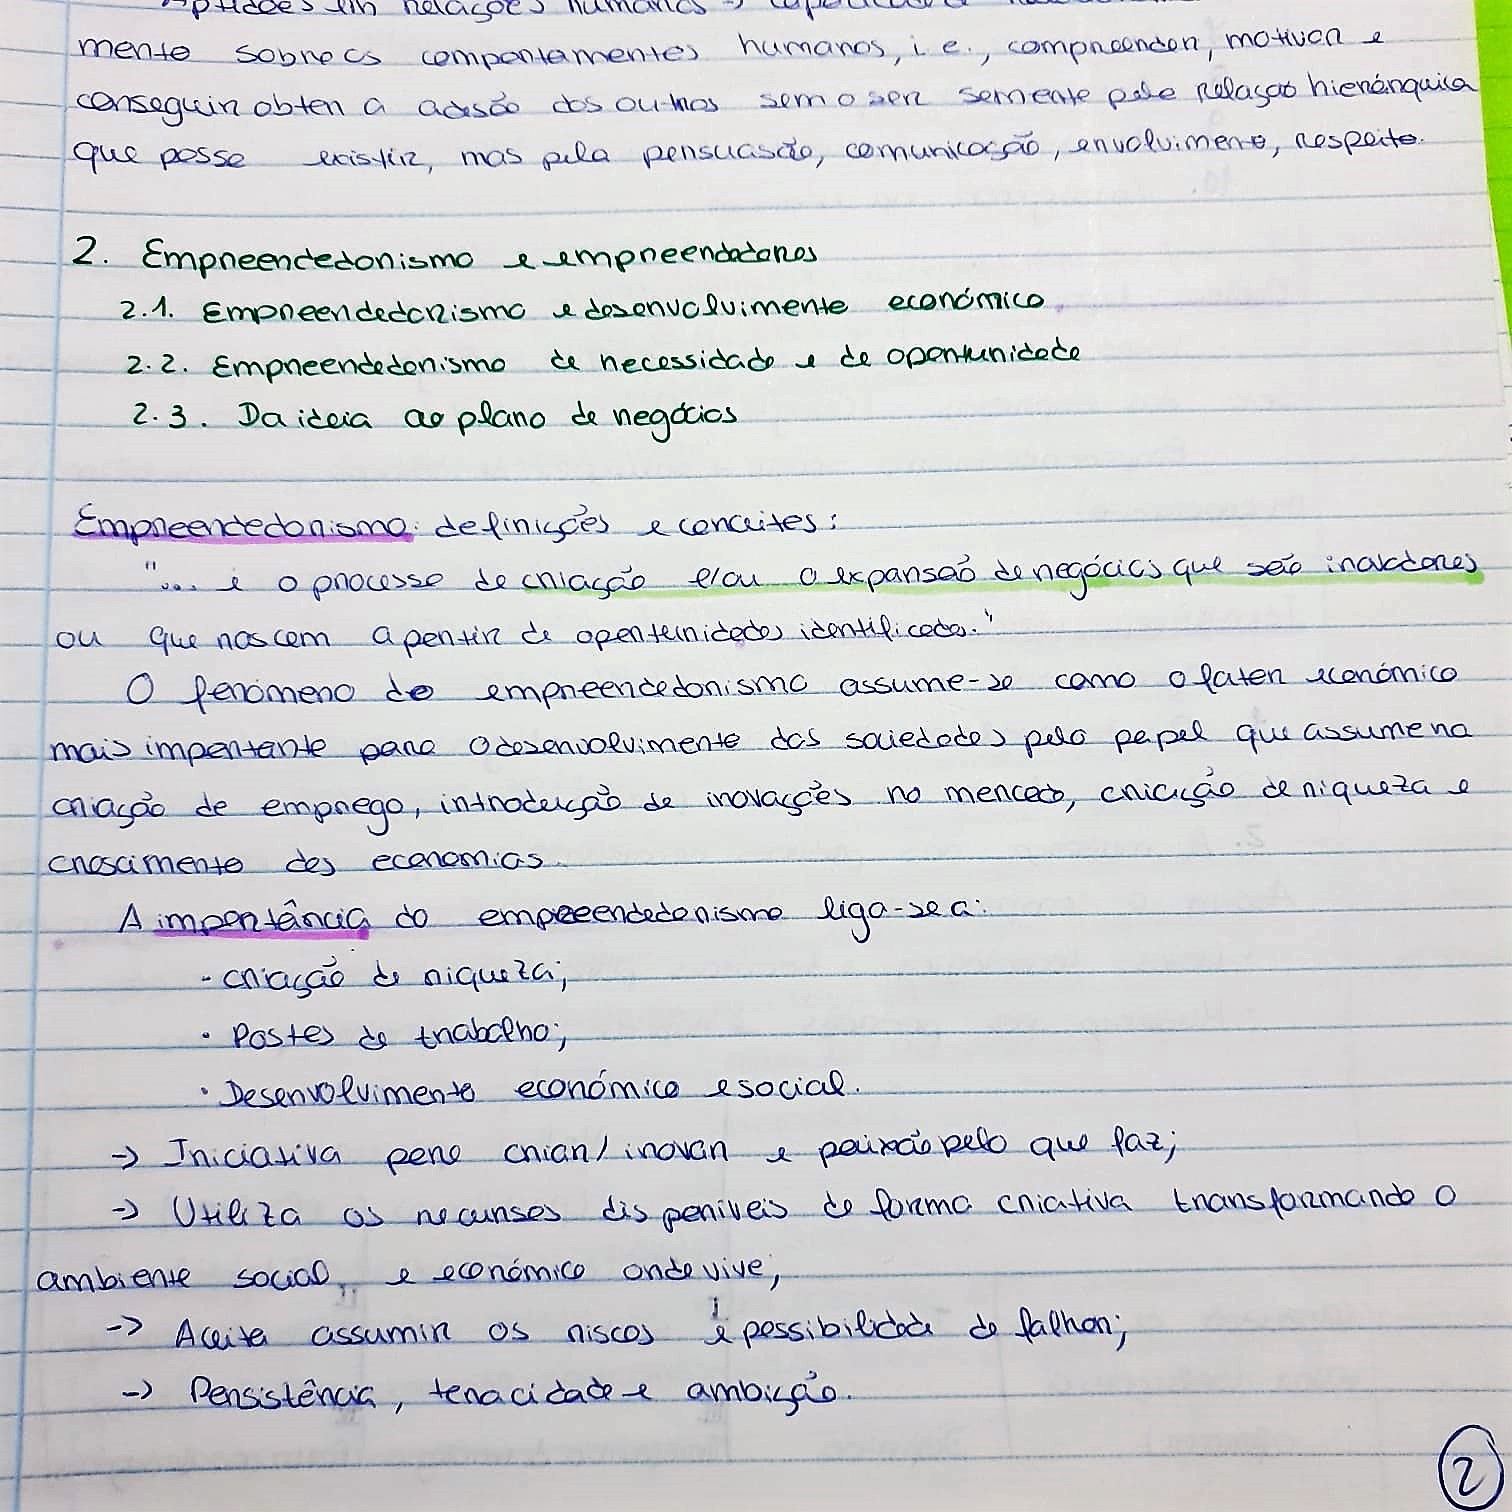 Aptidões em relações humanas →
mente sobre os comportamentos humanos, i.e., compreender, motivar e
conseguir obter a adesão dos outros sem o ser somente pela relação hierárquica
que possa existir, mas pela persuasão, comunicação, envolvimento, respeito.
2. Empreendedorismo e empreendedores
2.1. Empreendedorismo e desenvolvimento económico
2.2. Empreendedorismo de necessidade e de oportunidade
2.3. Da ideia ao plano de negócios
Empreendedorismo: definições e conceitos:
"... é o processo de criação e/ou o expansão de negócios que são inovadores
ou que nascem a partir de oportunidades identificadas."
O fenómeno do empreendedorismo assume-se como o fator económico
mais importante para o desenvolvimento das sociedades pelo papel que assume na
criação de emprego, introdução de inovações no mercado, criação de riqueza e
crescimento das economias.
A importância do empreendedorismo liga-se a:
· Criação de riqueza;
· Postos de trabalho;
· Desenvolvimento económico e social.
→ Iniciativa para criar/inovar e paixão pelo que faz;
→ Utiliza os recursos disponíveis de forma criativa transformando o
ambiente social, e económico onde vive;
→ Aceita assumir os riscos e possibilidade de falhar;
→ Persistência, tenacidade e ambição.
2